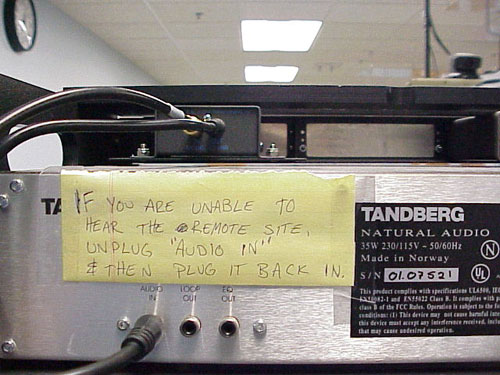 TA
IF YOU ARE UNABLE TO
HEAR THE REMOTE SITE,
UNPLUG "AUDIO IN"
& THEN PLUG IT BACK IN.
AUDIO
IN
LOOP
OUT
EQ
OUT
TANDBERG
NATURAL AUDIO
35W 230/115V ~ 50/60Hz
Made in Norway
S/N 01.07521
N
This product complies with specifications UL6500, IEC
EN50082-1 and EN55022 Class B. It complies with pa
class B of the FCC Rules. Operation is subject to the f
conditions: (1) This device may not cause harmful inte
this device must accept any interference received, includ
that may cause undesired operation.